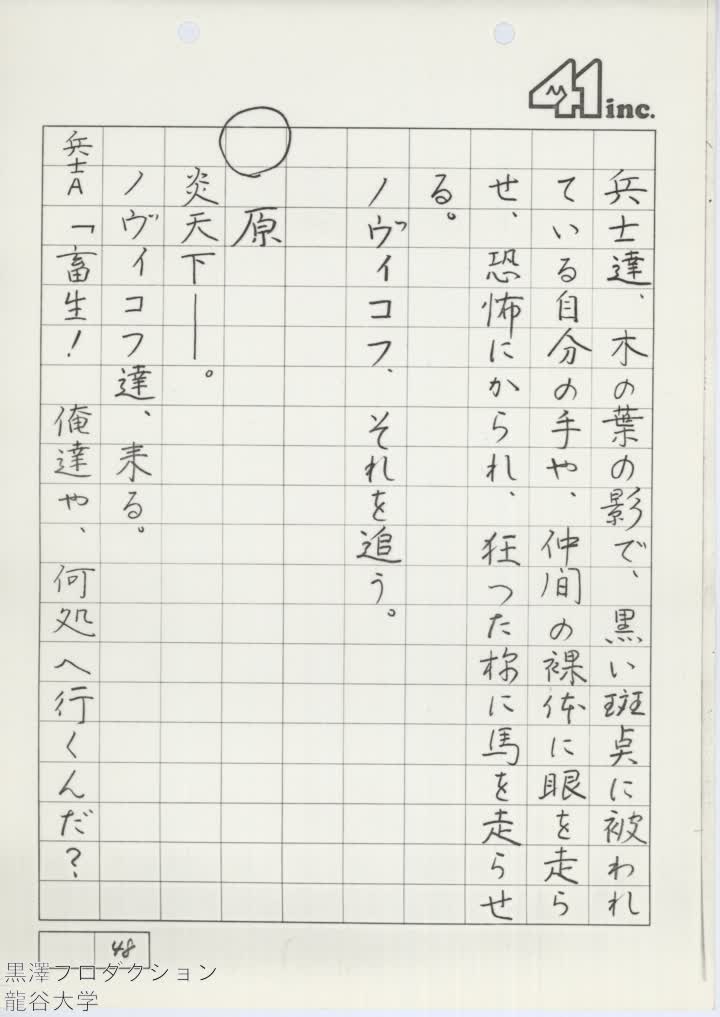 41 inc.
兵士達、木の葉の影で、黒い斑点に被われ
ている自分の手や、仲間の裸体に眼を走ら
せ、恐怖にかられ、狂った様に馬を走らせ
る。
ノヴィコフ、それを追う。
○ 原
炎天下――。
ノヴィコフ達、来る。
兵士A「畜生! 俺達や、何処へ行くんだ?
48
黒澤プロダクション
龍谷大学